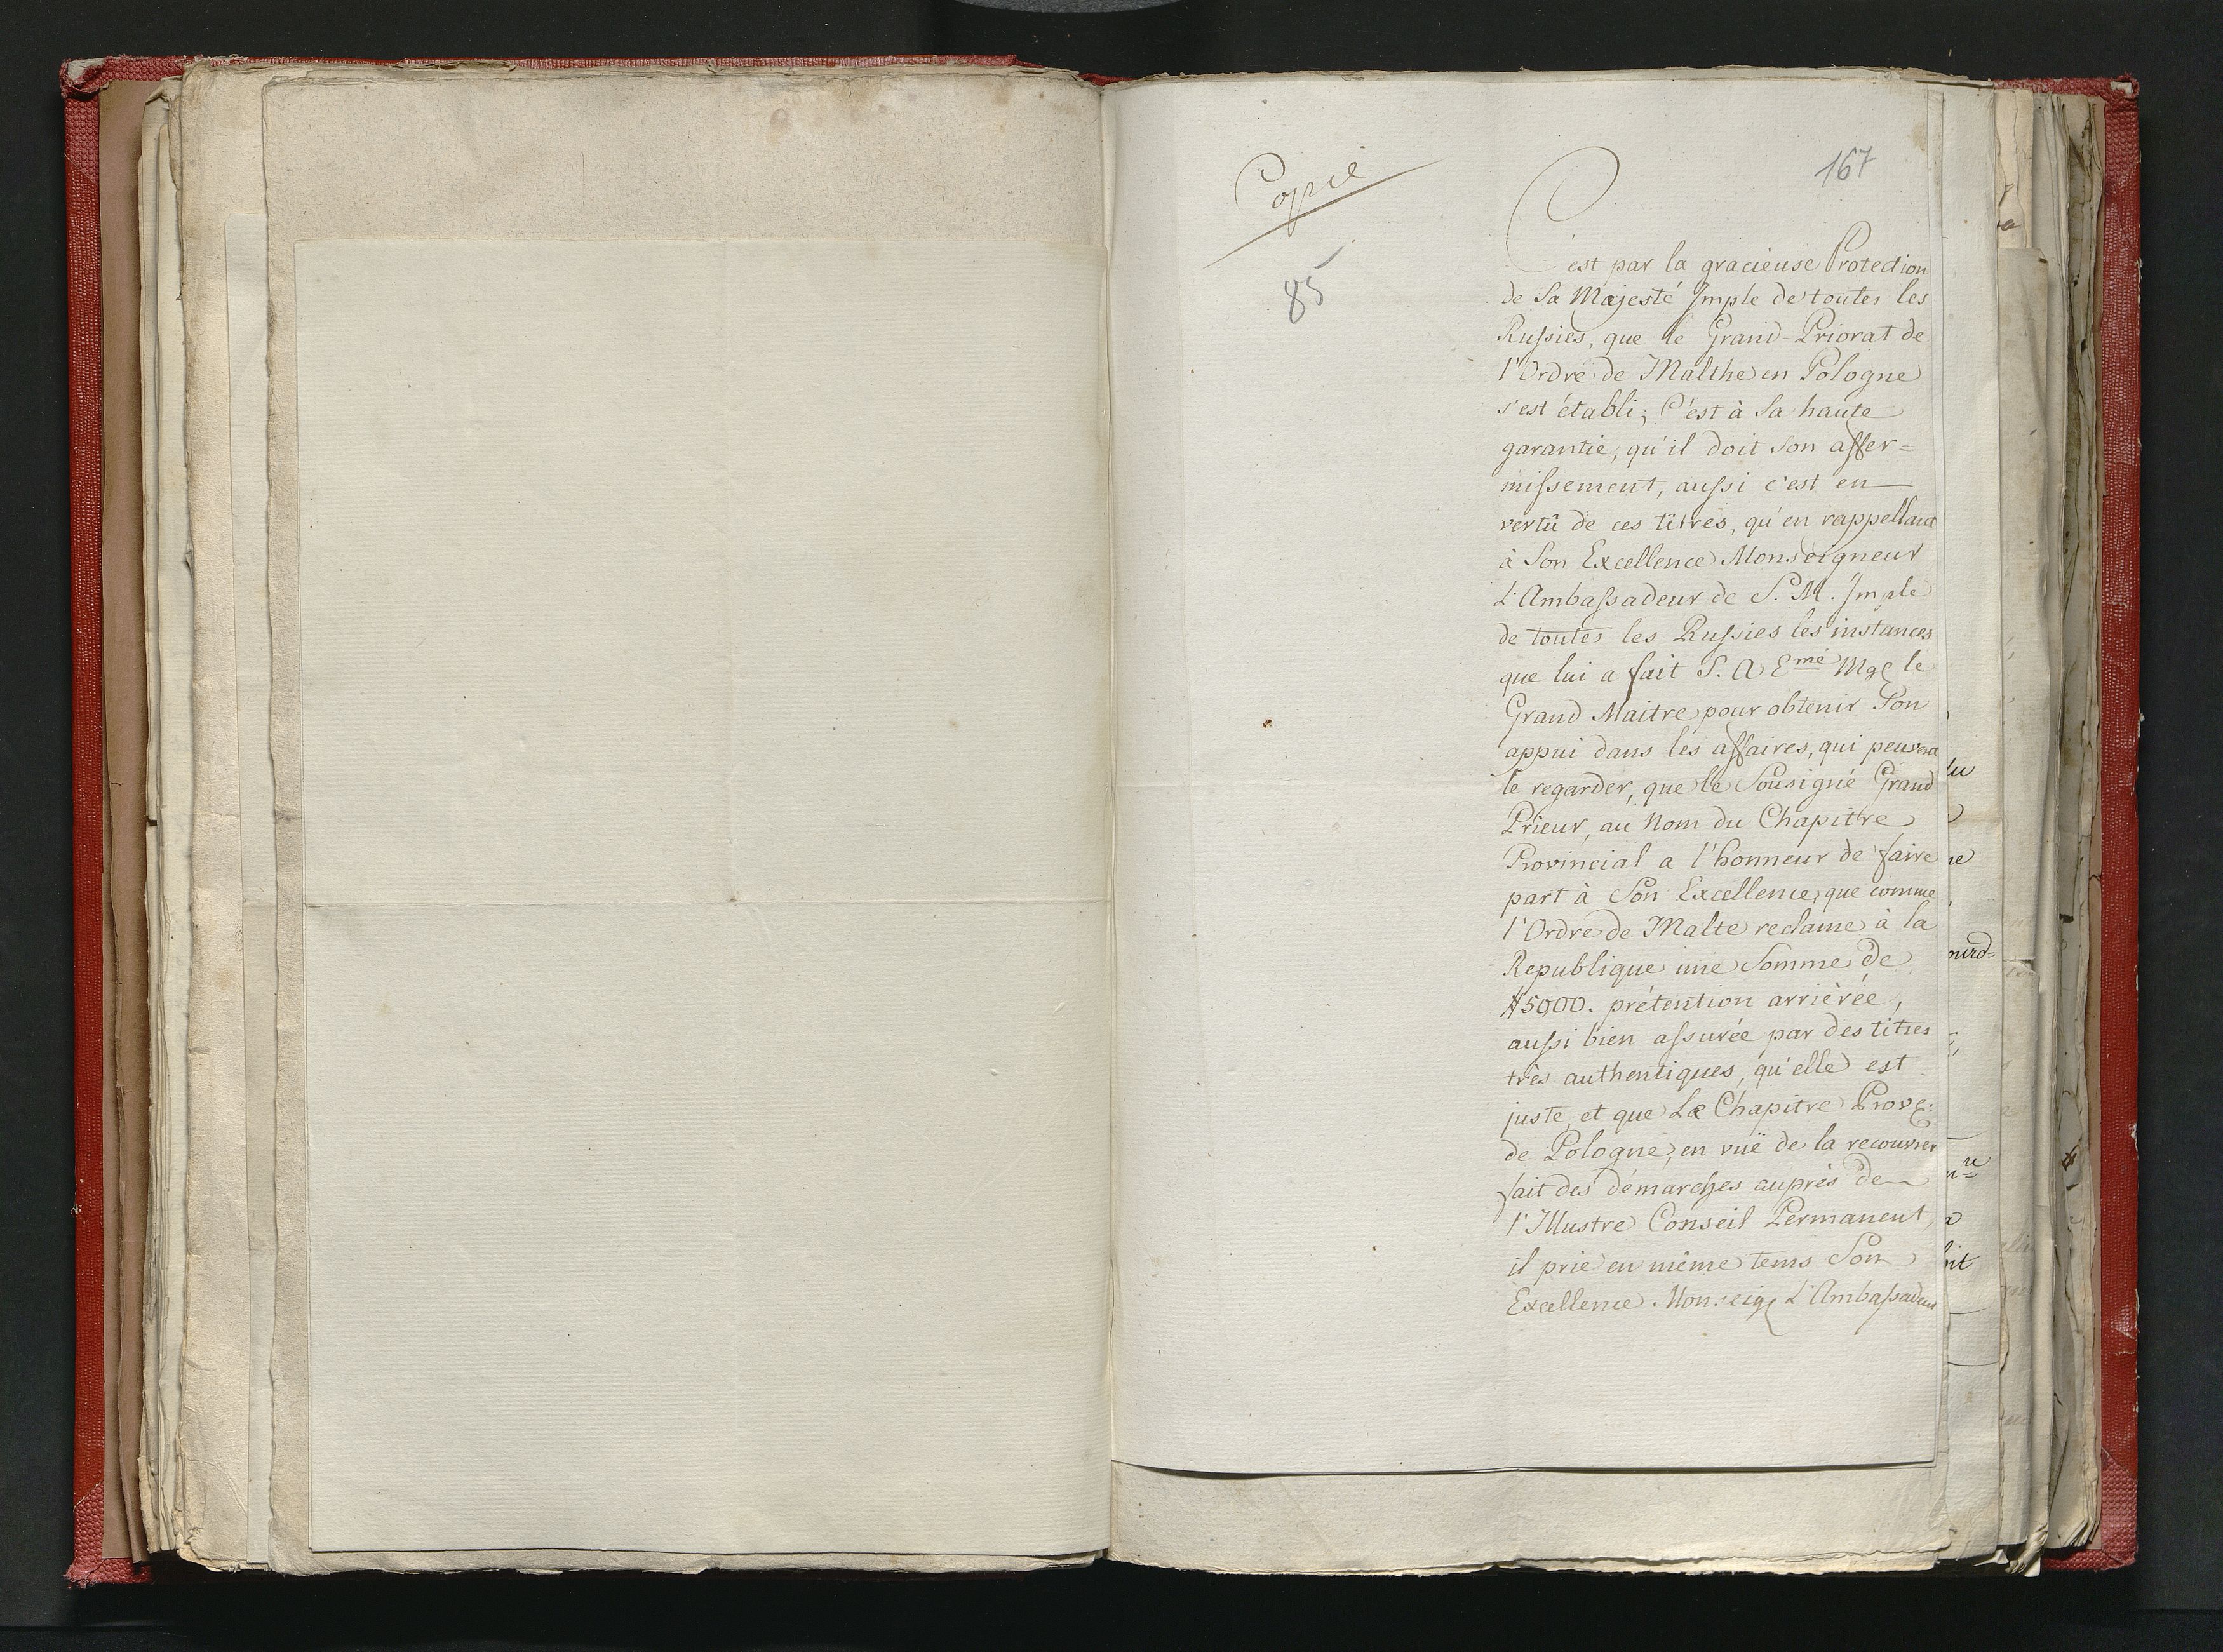 Copie
167
85
C'est par la gracieuse Protection
de Sa Majesté Imple de toutes les
Russies, que le Grand-Priorat de
l'Ordre de Malthe en Pologne
s'est établi; C'est à Sa haute
garantie, qu'il doit son affer=
missement, aussi c'est en
vertû de ces titres, qu'en rappellant
à Son Excellence Monseigneur
L'Ambassadeur de S. M. Imple
de toutes les Russies les instances
que lui a fait S. A Emê Mgr le
Grand Maitre pour obtenir Son
appui dans les affaires, qui peuvent
le regarder, que le Sousigné Grand
Prieur, au Nom du Chapitre
Provincial a l'honneur de faire
part à Son Excellence, que comme
l'Ordre de Malte reclame à la
Republique une Somme de
5000. prétention arrièrée,
aussi bien assurée par des titres
très authentiques, qu'elle est
juste, et que Le Chapitre Prov:
de Pologne, en vuë de la recouvrer
fait des démarches auprès de
l'Illustre Conseil Permanent,
il prie en même tems Son
Excellence Monseigr L'Ambassadeur